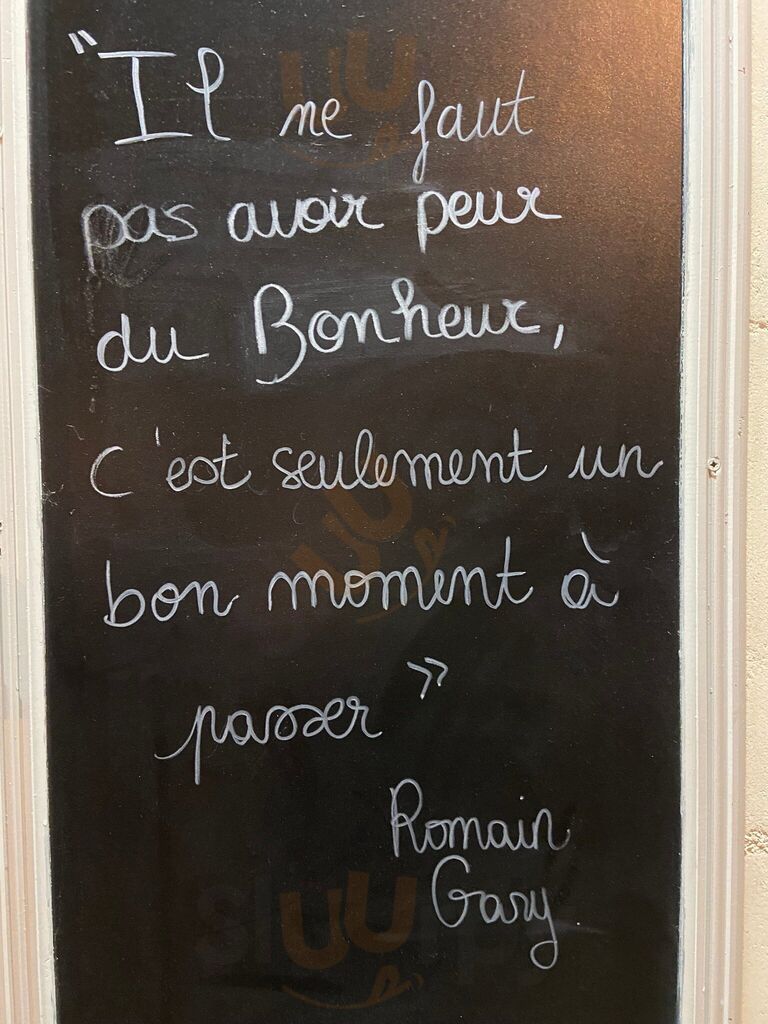 "Il ne faut
pas avoir peur
du Bonheur,
c'est seulement un
bon moment à
passer »
Romain
Gary